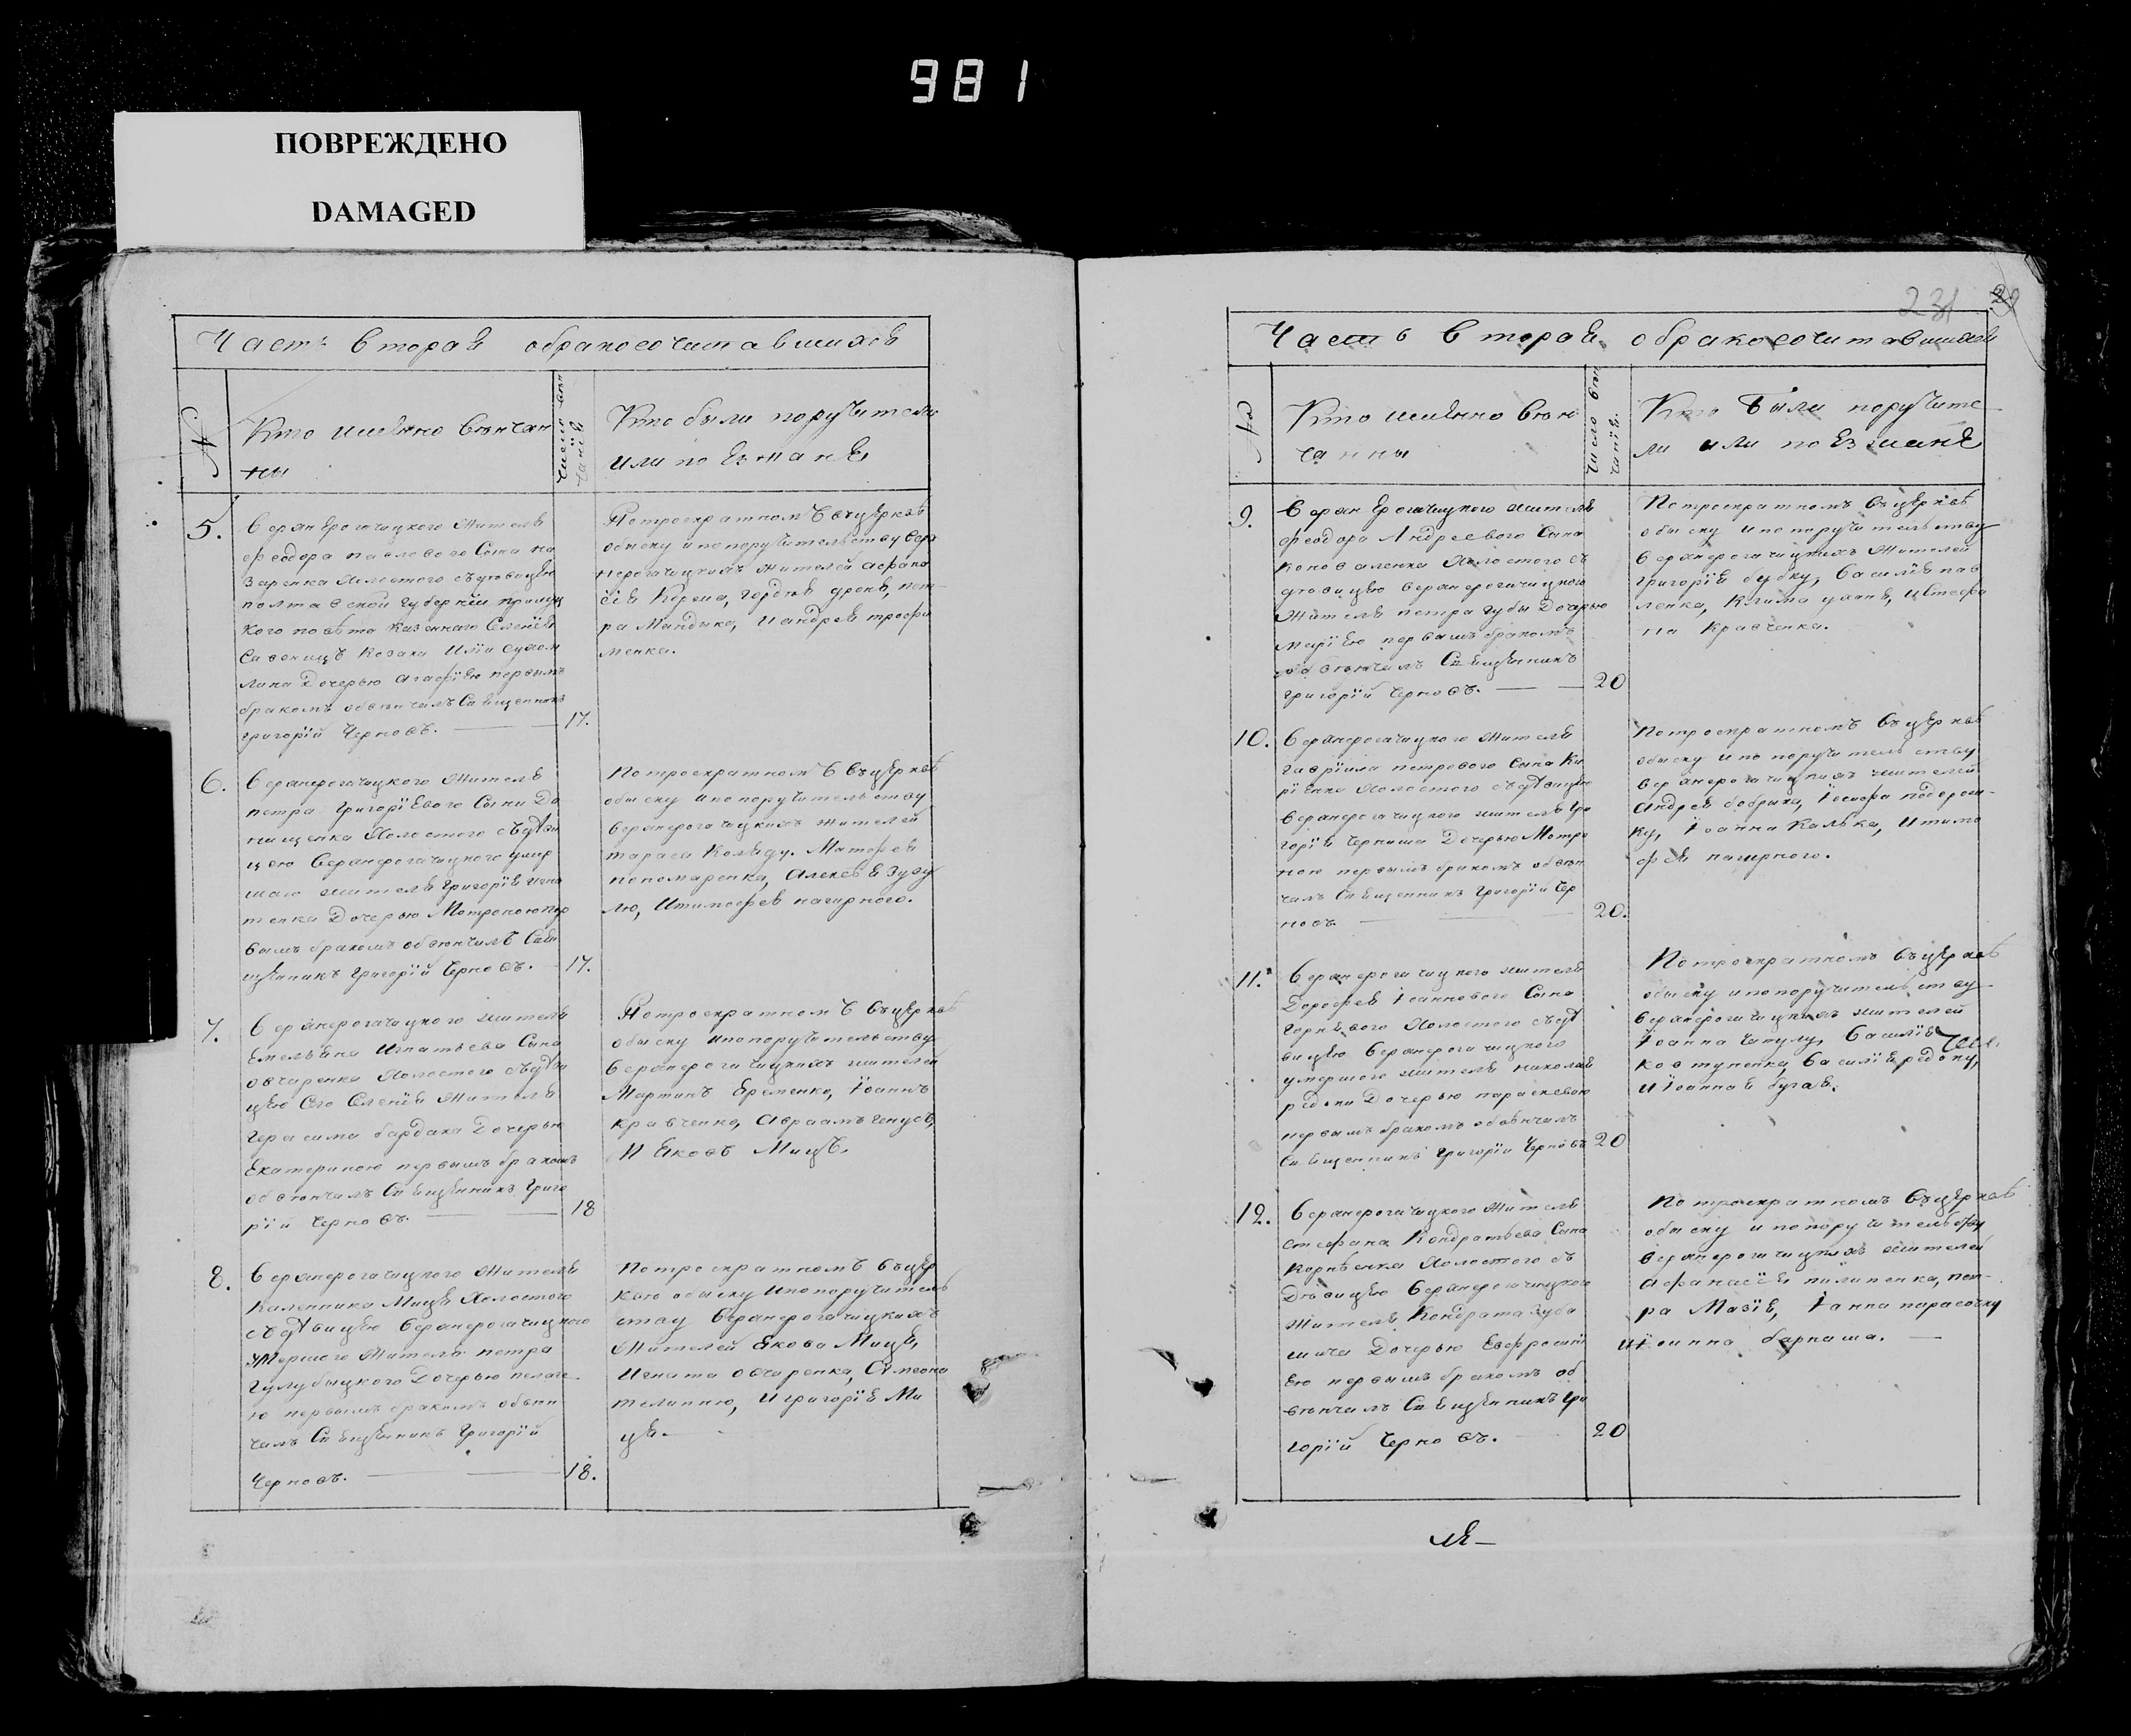 981
ПОВРЕЖДЕНО
DAMAGED
Часть вторая о бракосочитавшихся
№
Кто имянно венчан
ны
Кто были поручители
или поезжаня
5.
Верхнерогачицкого жителя
феодора павлового Сына на
заренка холостого съ девицею
полтавской губернїи прилуц
кого повѣта казенного Селенїя
козака
лина дочерью агафїею первымъ
бракомъ обвенчалъ Священникъ
григорїй Черновъ.
17.
Потроекратномъ въ церквѣ
обыску и по поручительству верх
нерогачицкихъ жителей афана
сїя гордѣя пет
ра Мандыка, и андрея трофи
менка.
6.
Верхнерогачицкого жителя
петра григорїевого Сына До
нищенка холостого съ дѣви
цею верхнерогачицкого умер
шаго жителя григорїя игна
тенка дочерью Мотроною пер
вымъ бракомъ обвѣнчалъ Свя
щенникъ григорїй Черновъ.
17.
Потроекратномъ въ церквѣ
обыску и по поручительству
верхнерогачицкихъ жителей
тараса Коляду. Матфея
пономаренка, Алексѣя зузу
лю, и тимофея нагирного.
7.
Верхнерогачицкого жителя
Емельяна Игнатьева Сына
овчаренка холостого съ дѣви
цею Сего Селенїя жителя
герасима бардака дочерью
Екатериною первымъ бракомъ
обвѣнчалъ Священникъ Григо
рїй Черновъ.
18
Потроекратномъ въ церквѣ
обыску и по поручительству
верхнерогачицкихъ жителей
Мартинъ Еременко, Iоаннъ
кравченко, Авраамъ
и Яковъ Мицѣ.
8.
Верхнерогачицкого жителя
Каленника Мицѣ холостого
съ дѣвицею верхнерогачицкого
умершего жителя петра
гулубыцкого дочерью пелаге
ю первымъ бракомъ обвѣн
чалъ Священникъ Григорїй
Черновъ.
18.
Потроекратномъ въ цер
квѣ обыску и по поручитель
ству верхнерогачицкихъ
жителей Якова Мицѣ,
Игната овчаренка, Симеона
и григорїя Ми
цѣ.
231
Часть вторая о бракосочитавшихся
№
Кто имянно вѣн
чанны
Число вѣн
чанїя.
Кто были поручите
ли или поезжаня
9.
Верхнерогачицкого жителя
феодора Андреевого Сына
коноваленка холостого съ
дѣвицею верхнерогачицкого
жителя петра губы дочерью
марїею первымъ бракомъ
обвѣнчалъ Священникъ
григорїй Черновъ.
20
Потроекратномъ въ церквѣ
обыску и по поручительству
верхнерогачицкихъ жителей
григорїя бубку, василїя пав
ленка, Клима и Стефа
на Кравченка.
10.
Верхнерогачицкого жителя
гаврїила петрового Сына Ки
рїенка холостого съ дѣвицею
верхнерогачицкого жителя гри
горїя черниша дочерью Мотро
ною первымъ бракомъ обвѣн
чалъ Священникъ Григорїй Чер
новъ
20.
Потроекратномъ въ церквѣ
обыску и по поручительству
верхнерогачицкихъ жителей
Андрея бобрика, Iосифа подорож
ку, Iоанна Калька, и тимо
фея нагирного.
11.
Верхнерогачицкого жителя
Дорофея Iоаннового Сына
горнѣвого холостого съ дѣ
вицею верхнерогачицкого
умершого жителя николая
редьки дочерью параскевою
первымъ бракомъ обвѣнчалъ
Священникъ Григорїй Черновъ
20
Потроекратномъ въ церквѣ
обыску и по поручительству
верхнерогачицкихъ жителей
Iоанна василїя
ковтуненка василїя редьку,
и Iоанна бугая.
12.
Верхнерогачицкого жителя
стефана Кондратьева Сына
Корнѣенка холостого съ
Дѣвицею верхнерогачицкого
жителя Кондрата
дочерью Евфросинї
ею первымъ бракомъ об
вѣнчалъ Священникъ Гри
горїй Черновъ.
20
Потроекратномъ въ церквѣ
обыску и по поручительству
верхнерогачицкихъ жителей
афанасїя пилипенка, пет
ра Мазїя, Iоанна парасочку
и Iоанна барнаша.